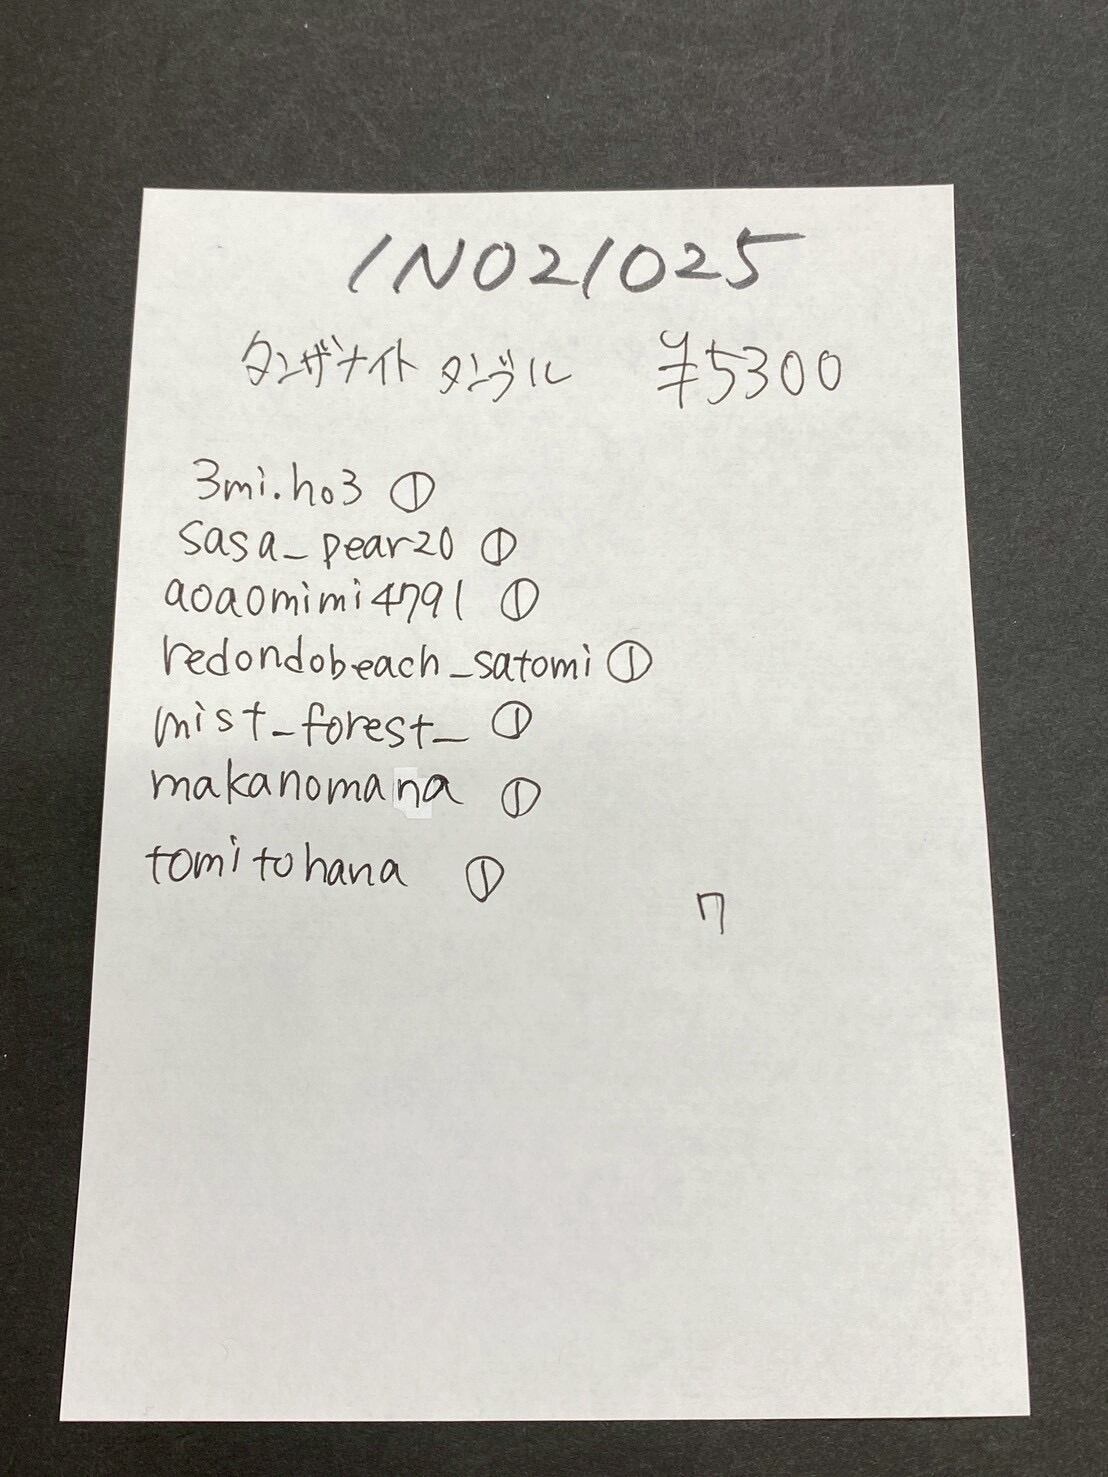 INO21025
タンザナイト タンブル ¥5300
3mi.ho3 ①
sasa_pear20 ①
aoaomimi4791 ①
redondobeach_satomi ①
mist_forest_ ①
makanomana ①
tomitohana ①
7